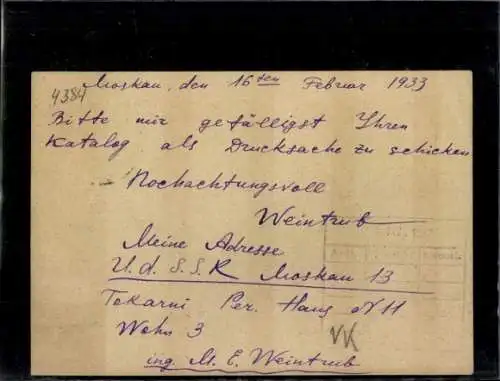 4384
Moskau, den 16ten Februar 1933
Bitte mir gefälligst Ihren
Katalog als Drucksache zu schicken
Hochachtungsvoll
Weintrub
Meine Adresse
U.d.S.S.R Moskau 13
Tokarni Per. Haus N 11
Wohn 3
ing. M. E. Weintrub
VK